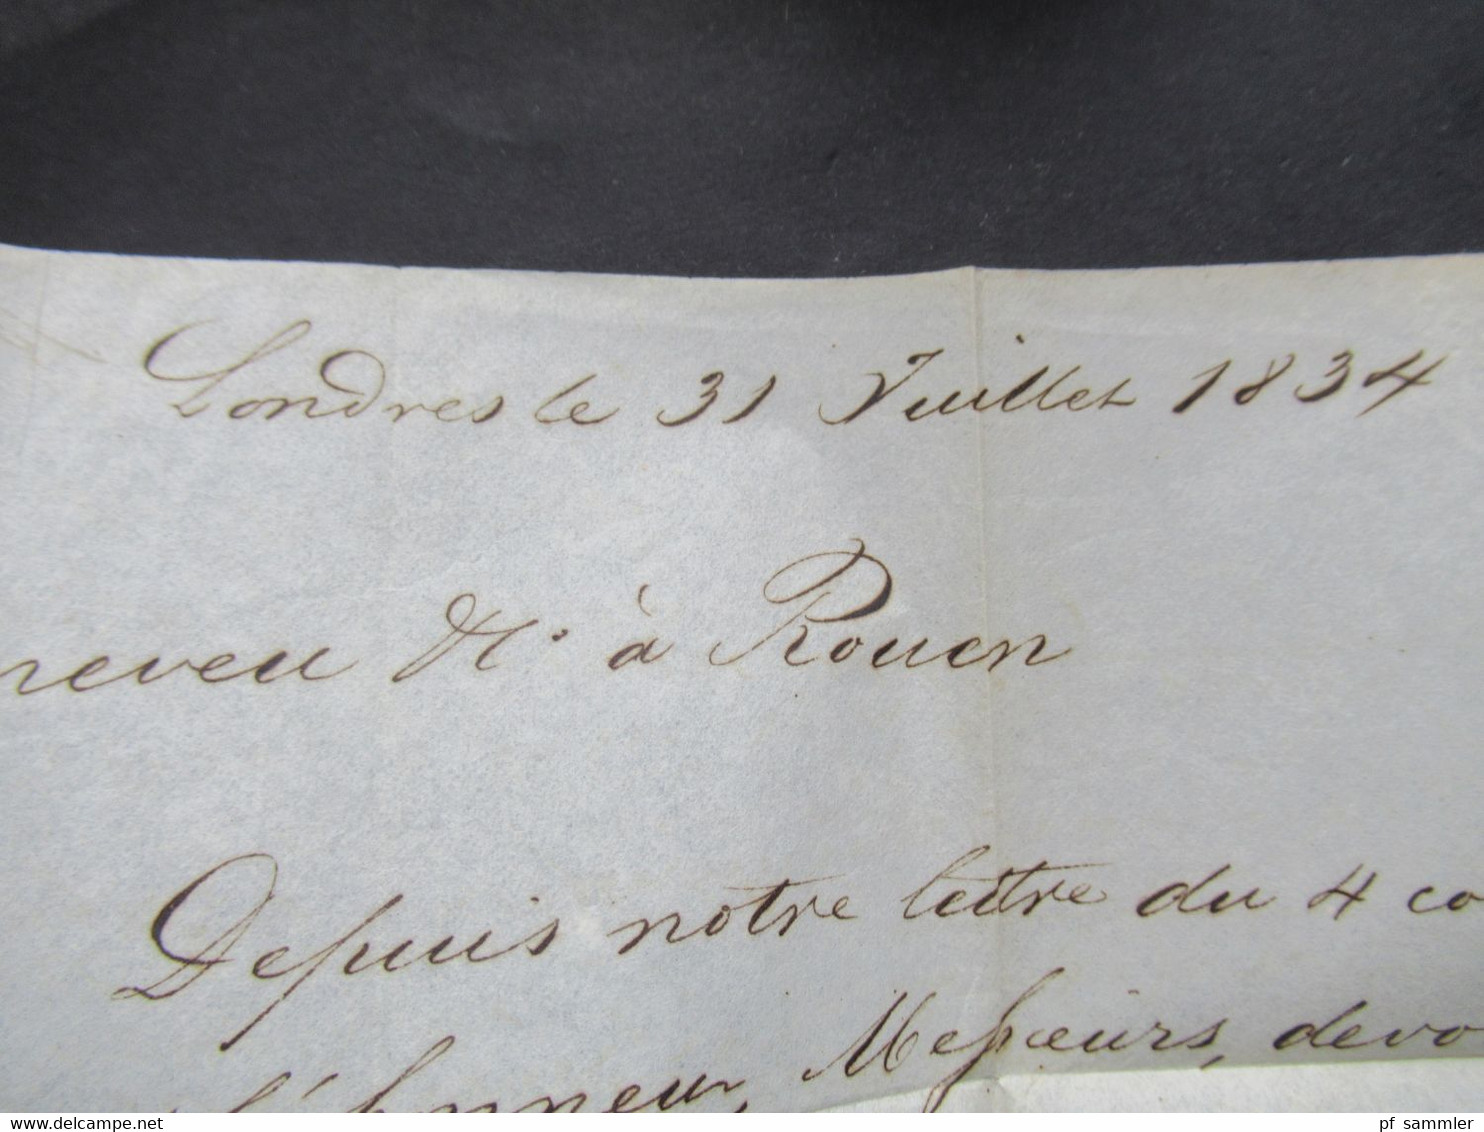 Londres le 31 Juillet 1834
neveu & Co. à Rouen
Depuis notre lettre du 4 co
l'honneur, Messieurs, devo
delcampe.net
pf_sammler